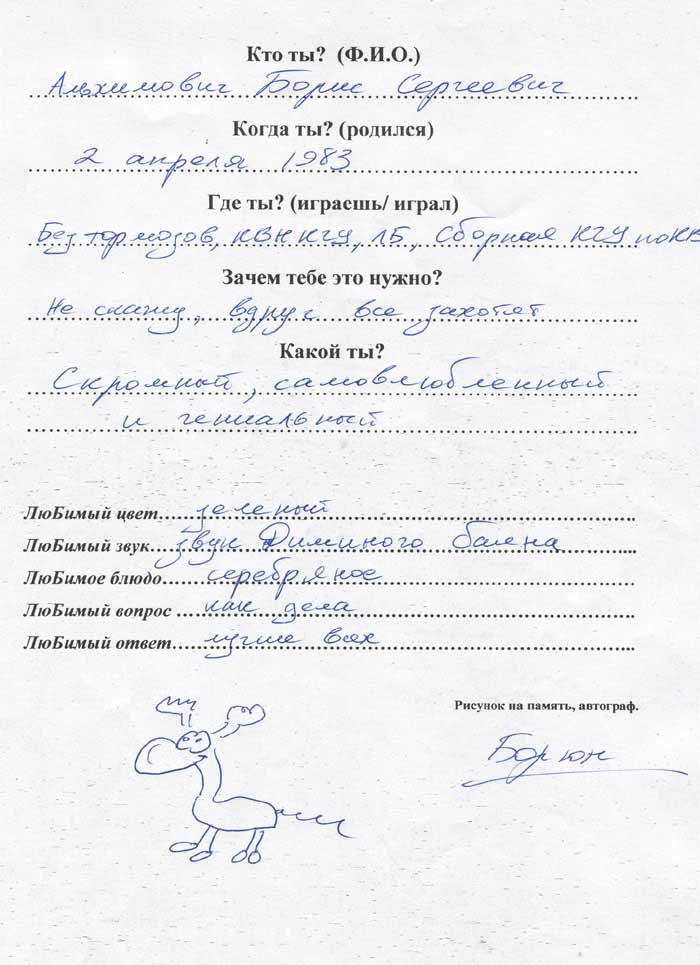 Кто ты? (Ф.И.О.)
Альхимович Борис Сергеевич
Когда ты? (родился)
2 апреля 1983
Где ты? (играешь/ играл)
Без тормозов, КВН КГУ, ЛБ, Сборная КГУ по КВ
Зачем тебе это нужно?
Не скажу, вдруг все захотят
Какой ты?
Скромный, самовлюбленный
и гениальный
ЛюБимый цвет зеленый
ЛюБимый звук звук Диминого баяна
ЛюБимое блюдо серебряное
ЛюБимый вопрос как дела
ЛюБимый ответ лучше всех
Рисунок на память, автограф.
Борюн